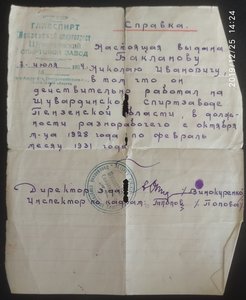 Справка.
ГЛАВСПИРТ
СПИРТОВОЙ ЗАВОД
Настоящая выдана
Бакланову
Николаю Ивановичу,
в том что он
действительно работал на
Шувардинском Спиртзаводе
Пензенской области, в долж-
ности разнорабочего с октября
м-ца 1928 года по февраль
месяц 1931 года.
Директор з-да: / Винокуренко
Инспектор по кадрам: Попова / Попова
2019/12/25 14:24